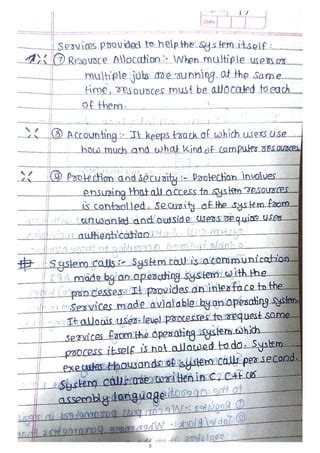 Services provided to help the system itself:
⑦ Resource Allocation:- When multiple users or
multiple jobs are running at the same
time, resources must be allocated to each
of them.
⑧ Accounting:- It keeps track of which users use
how much and what kind of computer resources
⑨ Protection and security:- Protection involves
ensuring that all access to system resources
is controlled. Security of the system from
unwanted and outside users requires user
authentication.
# System calls:- System call is a communication
made by an operating system with the
processes. It provides an interface to the
services made avialable by an operating system
It allows user-level processes to request some
services from the operating system which
process itself is not allowed to do. System
executes thousands of system calls per second.
System calls are written in C, C++ or
assembly language
3